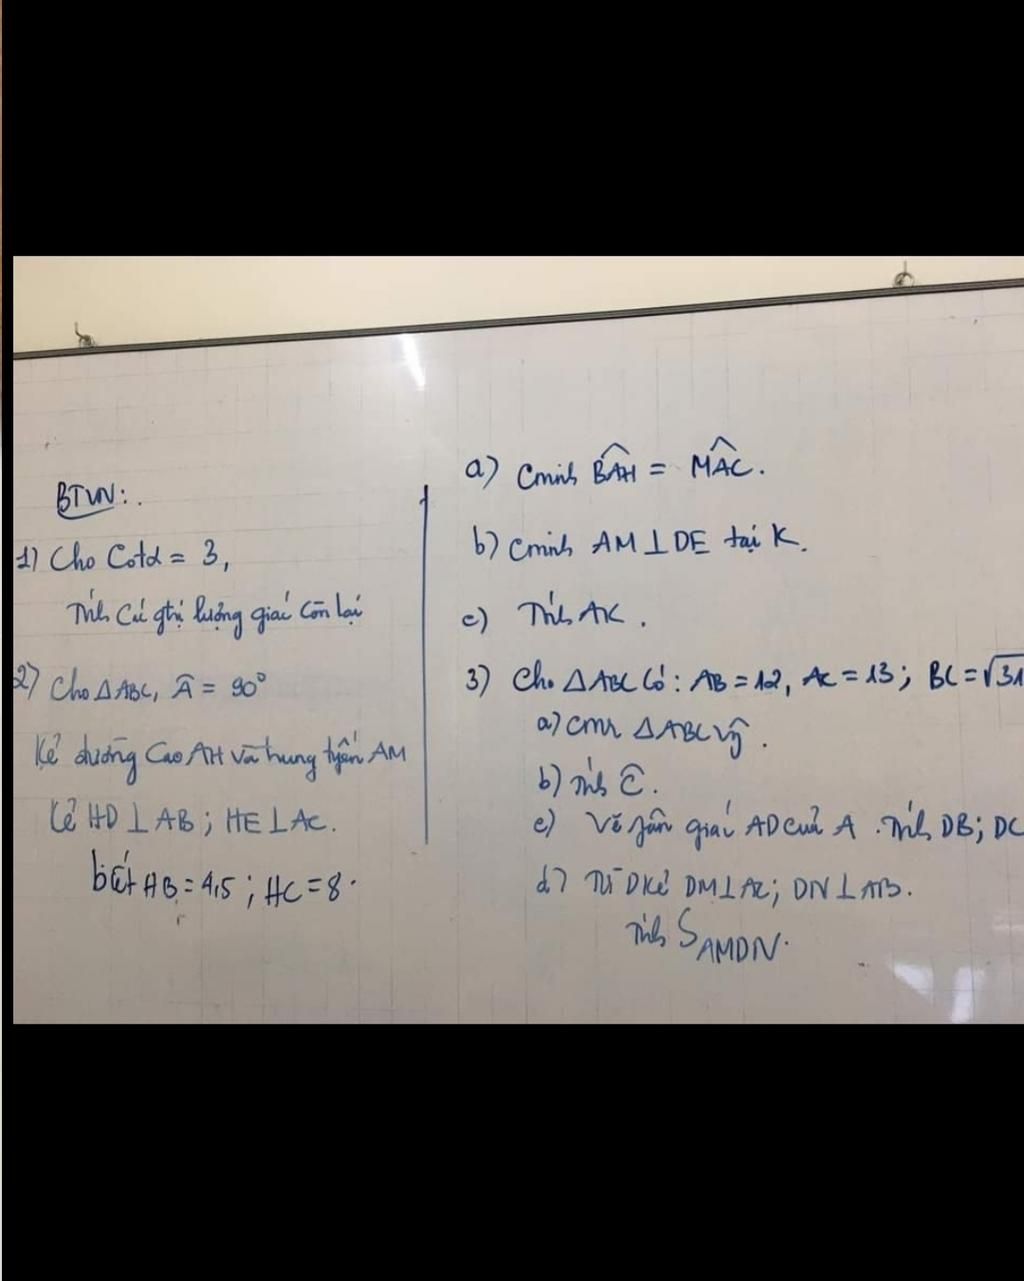 BTVN:.
1) Cho Cotα = 3,
Tính Các gtrị lượng giác còn lại
2) Cho ΔABC, Â = 90°
Kẻ đường Cao AH và trung tuyến AM
Kẻ HD ⊥ AB ; HE ⊥ AC.
biết HB = 4,5 ; HC = 8.
a) Cminh BÂH = MÂC.
b) Cminh AM ⊥ DE tại K.
c) Tính AK.
3) Cho ΔABC Có : AB = 12, AC = 13 ; BC = √31
a) cmr ΔABC vg .
b) Tính Ĉ.
c) Vẽ phân giác AD của A . Tính DB; DC
d) Từ D kẻ DM ⊥ AC; DN ⊥ AB.
Tính S_AMDN.